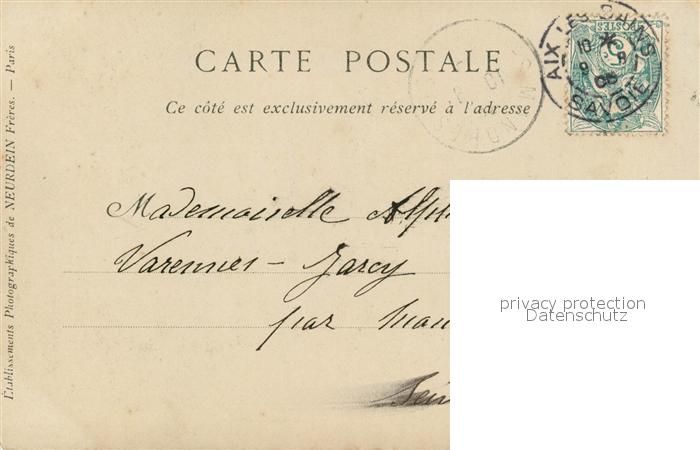 CARTE POSTALE
Ce côté est exclusivement réservé à l'adresse
AIX LES BAINS
SAVOIE
POSTES
5
Mademoiselle
Varennes - Jarcy
par
privacy protection
Datenschutz
Établissements Photographiques de NEURDEIN Frères. — Paris